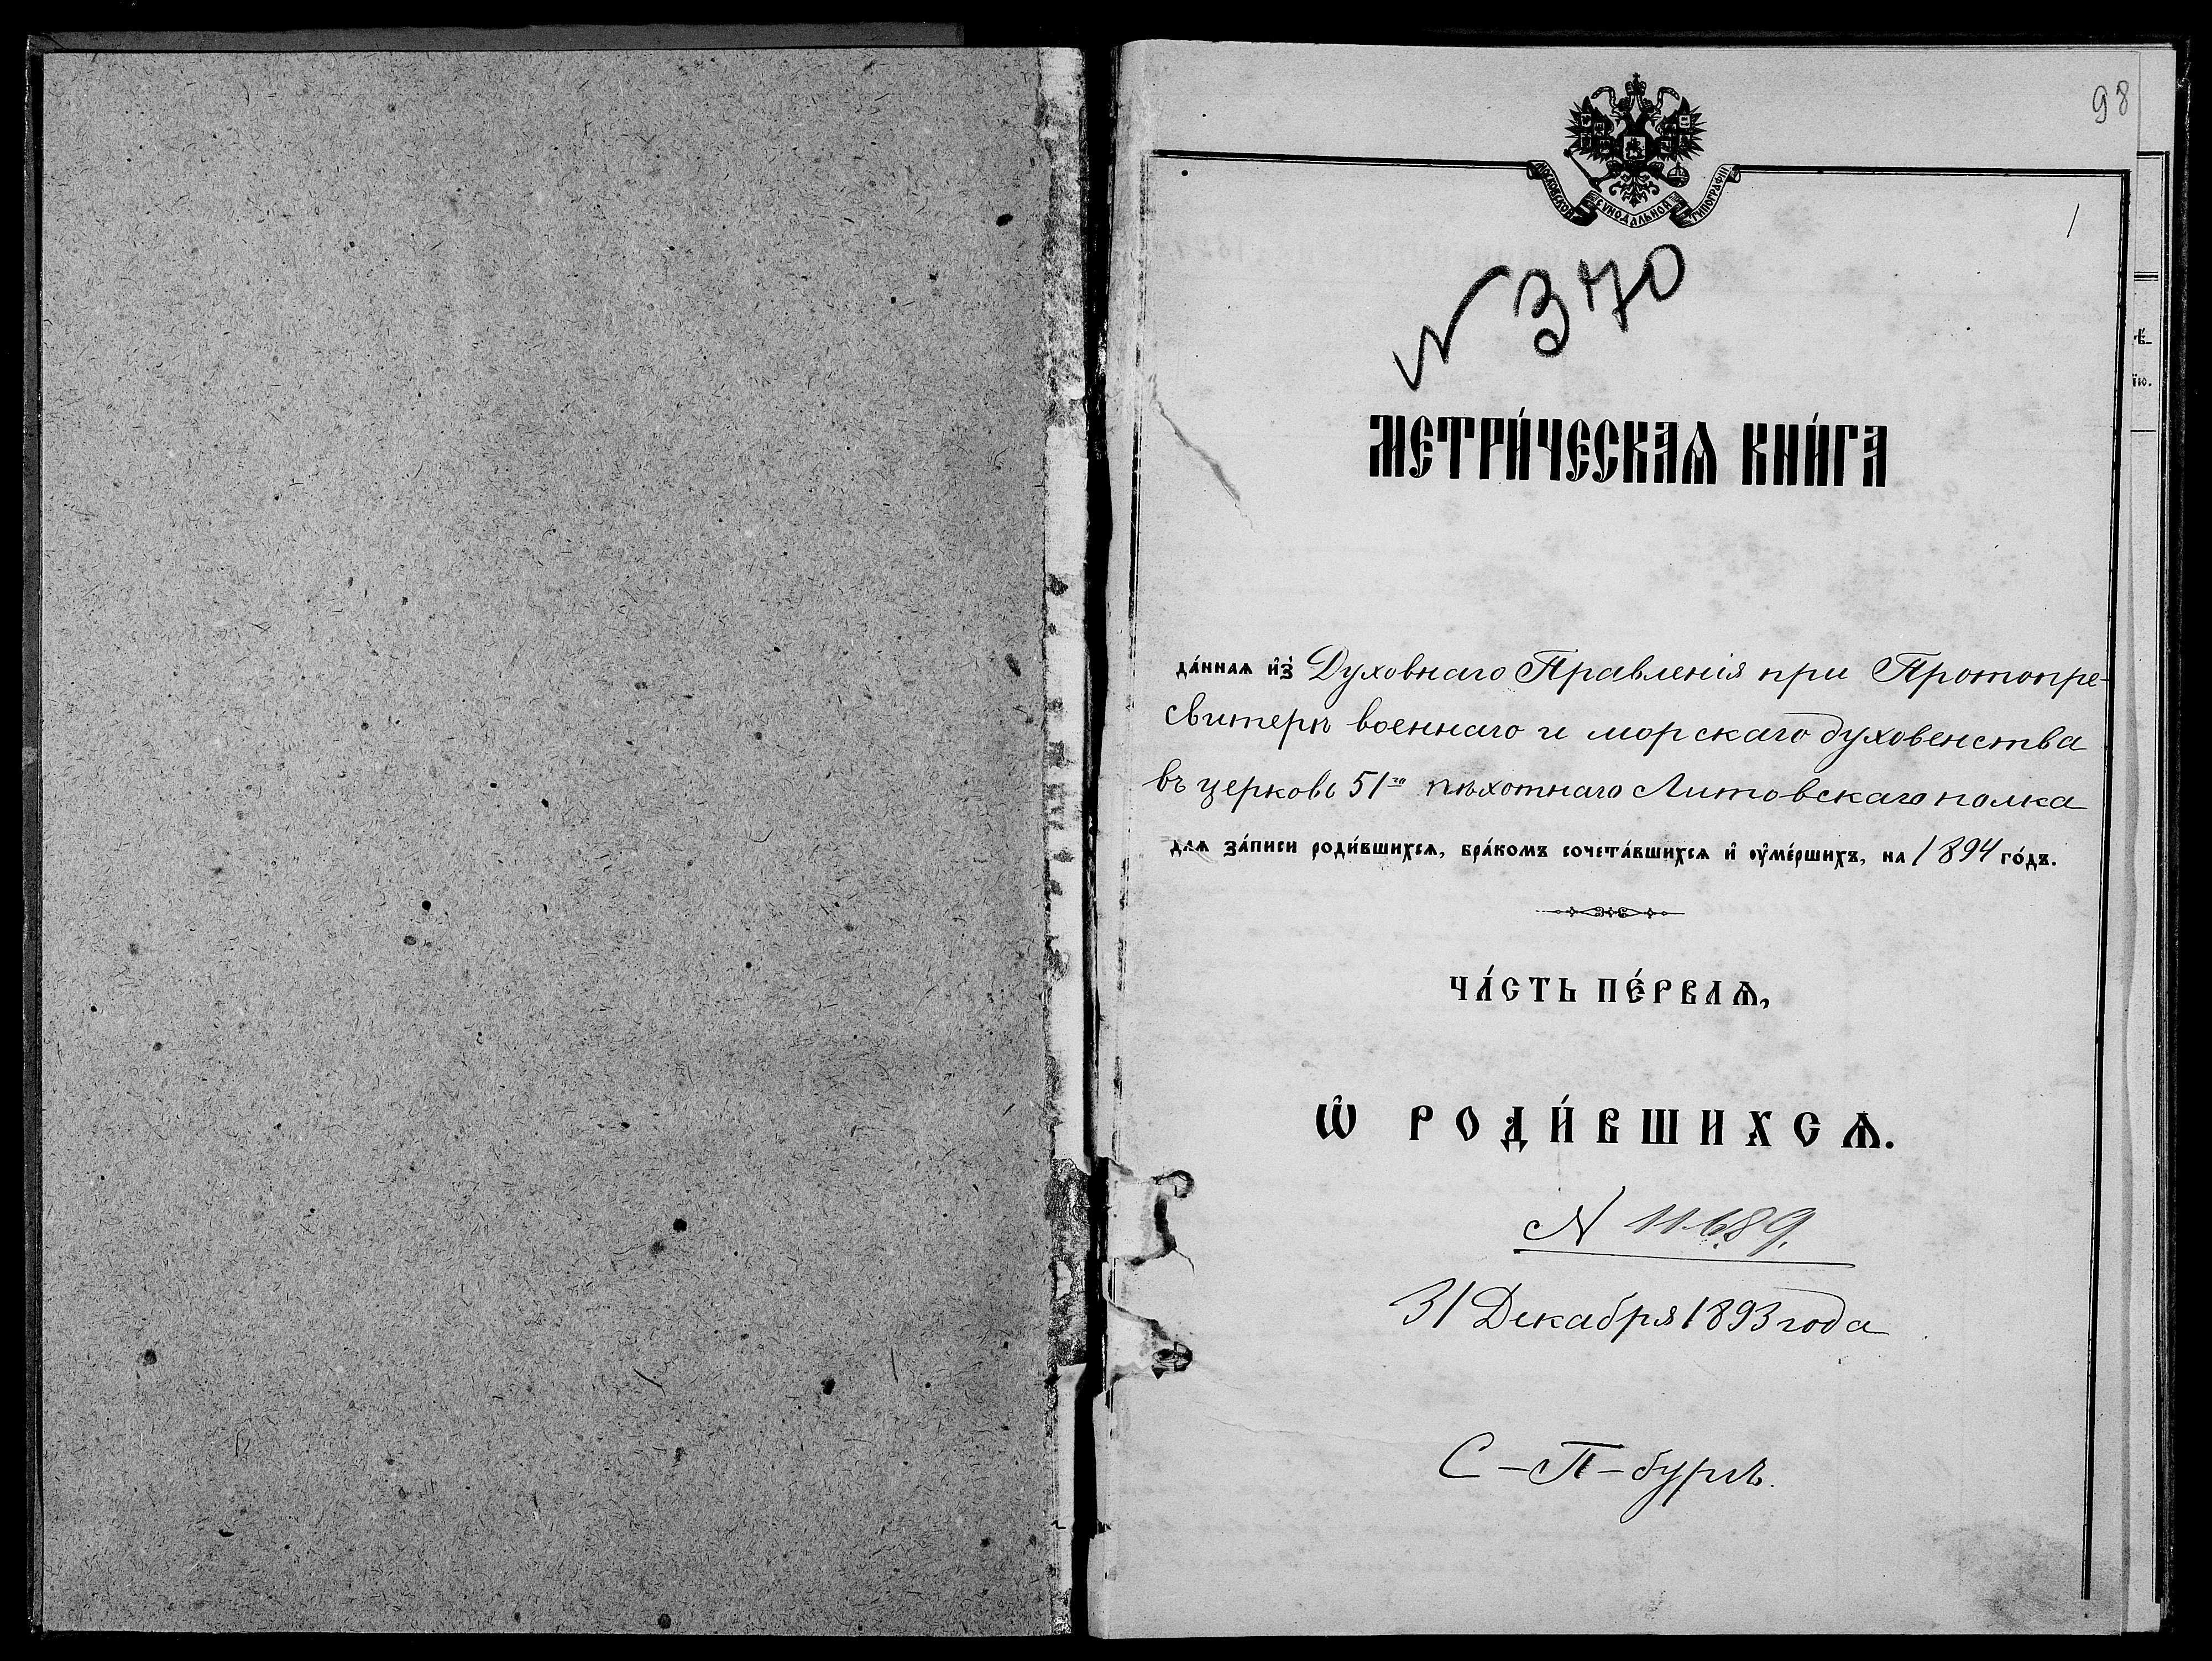 98
МОСКОВСКОЙ СѴНОДАЛЬНОЙ ТИПОГРАФІИ
1
N 370
МЕТРИ́ЧЕСКАѦ КНИ́ГА
да́ннаѧ и҆з̾ Духовнаго Правленія при Протопре-
свитерѣ военнаго и морскаго духовенства
въ церковь 51го пѣхотнаго Литовскаго полка
для за́писи роди́вшихсѧ, бра́комъ сочета́вшихсѧ и҆ ᲂу҆ме́ршихъ, на 1894 го́дъ.
ЧА́СТЬ ПЕ́РВАѦ,
Ѽ РОДИ́ВШИХСѦ.
N 11689.
31 Декабря 1893 года
С-П-бургъ.
ѣ-
їю.